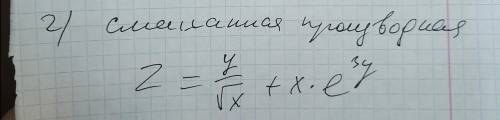 2) смешанная производная
Z = y/√x + x · e^{3y}